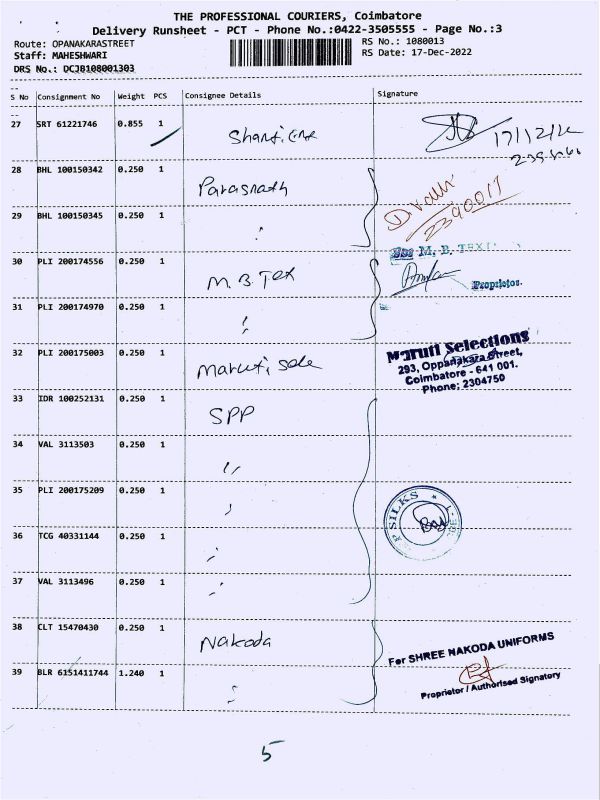 THE PROFESSIONAL COURIERS, Coimbatore
Delivery Runsheet - PCT - Phone No.:0422-3505555 - Page No.:3
Route: OPANAKARASTREET RS No.: 1080013
Staff: MAHESHWARI RS Date: 17-Dec-2022
DRS No.: DCJB108001303
S No Consignment No Weight PCS Consignee Details Signature
27 SRT 61221746 0.855 1
17/12/22
28 BHL 100150342 0.250 1 Parasnath
2390017
29 BHL 100150345 0.250 1 "
30 PLI 200174556 0.250 1 M.B. Tex
For M. B. TEX
Proprietor.
31 PLI 200174970 0.250 1 "
32 PLI 200175003 0.250 1 Maruti Sele
Maruti Selections
293, Oppanakara Street,
Coimbatore - 641 001.
Phone; 2304750
33 IDR 100252131 0.250 1 SPP
34 VAL 3113503 0.250 1 "
35 PLI 200175209 0.250 1 "
P SILKS
36 TCG 40331144 0.250 1 "
37 VAL 3113496 0.250 1 "
38 CLT 15470430 0.250 1 Nakoda
For SHREE NAKODA UNIFORMS
39 BLR 6151411744 1.240 1 "
Proprietor / Authorised Signatory
5